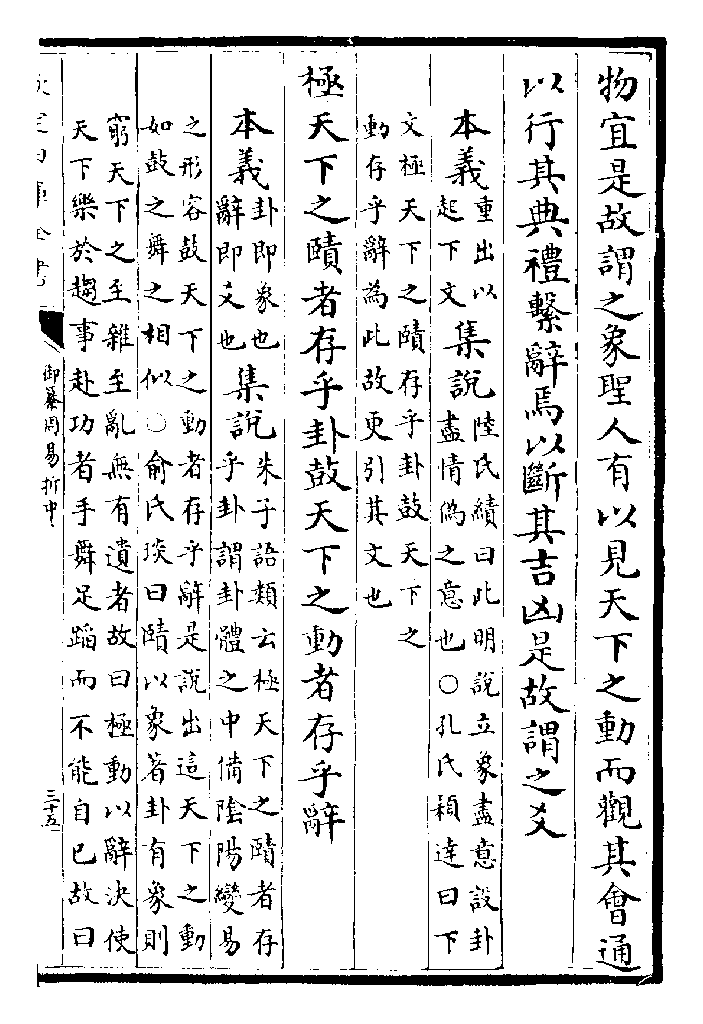 物宜是故謂之象聖人有以見天下之動而觀其會通
以行其典禮繫辭焉以斷其吉凶是故謂之爻
本義重出以起下文集說陸氏績曰此明說立象盡意設卦盡情偽之意也○孔氏穎達曰下
文極天下之賾存乎卦鼓天下之動存乎辭為此故更引其文也
極天下之賾者存乎卦鼓天下之動者存乎辭
本義卦即象也辭即爻也集說朱子語類云極天下之賾者存乎卦謂卦體之中備陰陽變易
之形容鼓天下之動者存乎辭是說出這天下之動如鼓之舞之相似○俞氏琰曰賾以象著卦有象則
窮天下之至雜至亂無有遺者故曰極動以辭決使天下樂於趨事赴功者手舞足蹈而不能自已故曰
御纂周易折中
三十五